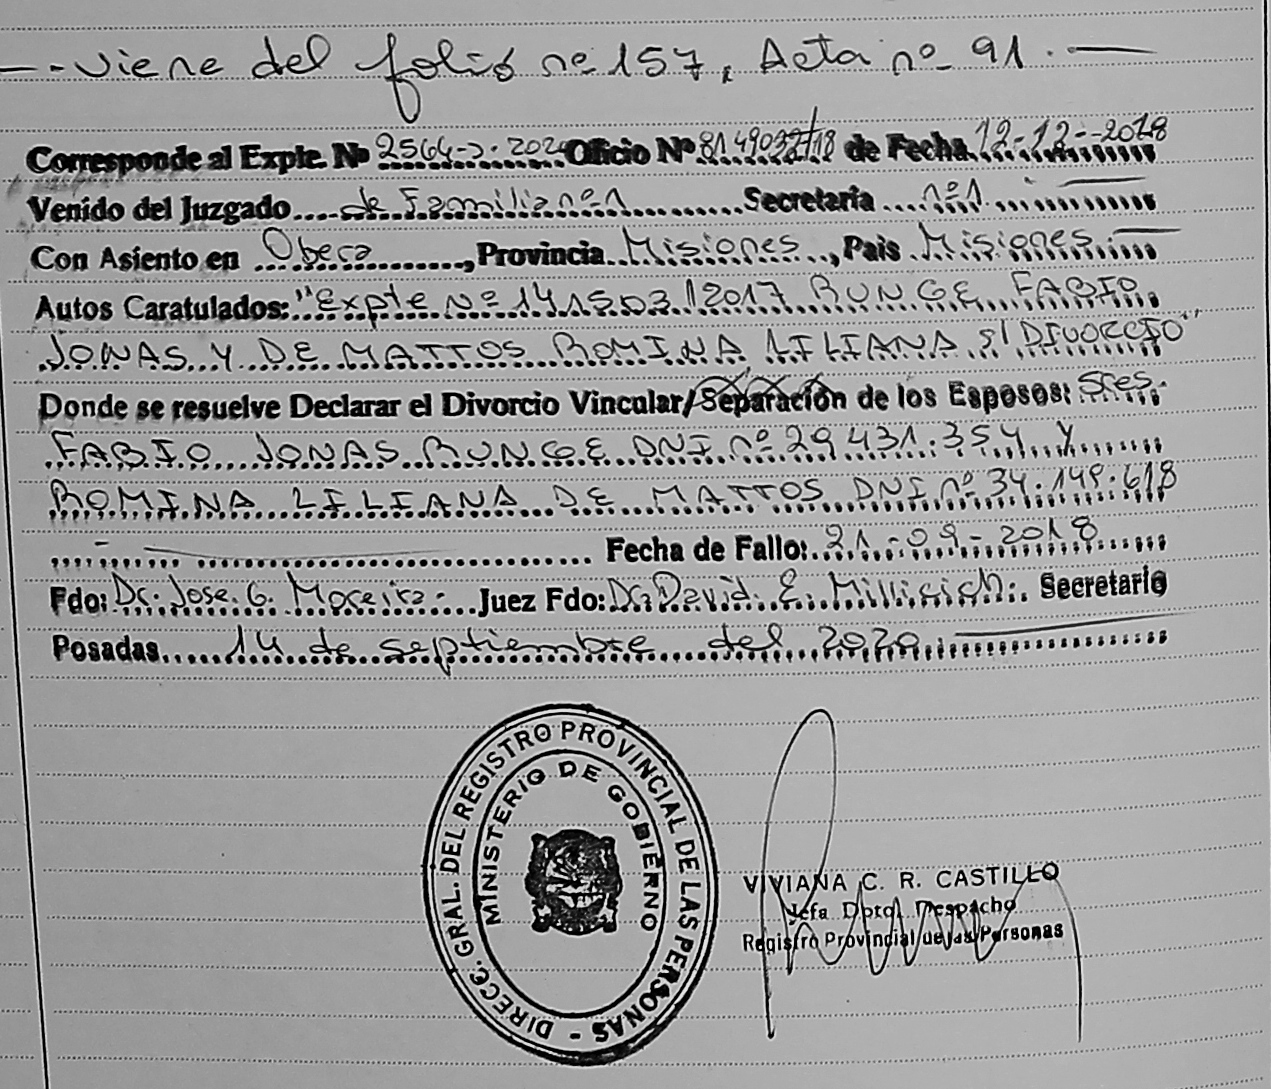 --. viene del folio nº 157, Acta nº 91.
Corresponde al Expte. Nº 2564-J-2020 Oficio Nº 8149032/18 de Fecha 12-12-2018
Venido del Juzgado de Familia nº 1 Secretaria nº 1
Con Asiento en Obera, Provincia Misiones, Pais Misiones.
Autos Caratulados: "Expte Nº 141503/2017 BUNGE FABIO
JONAS Y DE MATTOS ROMINA LILIANA s/ DIVORCIO"
Donde se resuelve Declarar el Divorcio Vincular/Separación de los Esposos: Sres.
FABIO JONAS BUNGE DNI nº 29.431.354 Y
ROMINA LILIANA DE MATTOS DNI nº 34.149.618
Fecha de Fallo: 21-09-2018
Fdo: Dr. Jose G. Moreira. Juez Fdo: Dr. David E. Millicich. Secretario
Posadas 14 de septiembre del 2020.
DIRECC. GRAL. DEL REGISTRO PROVINCIAL DE LAS PERSONAS -
MINISTERIO DE GOBIERNO
VIVIANA C. R. CASTILLO
Jefa Dpto. Despacho
Registro Provincial de las Personas